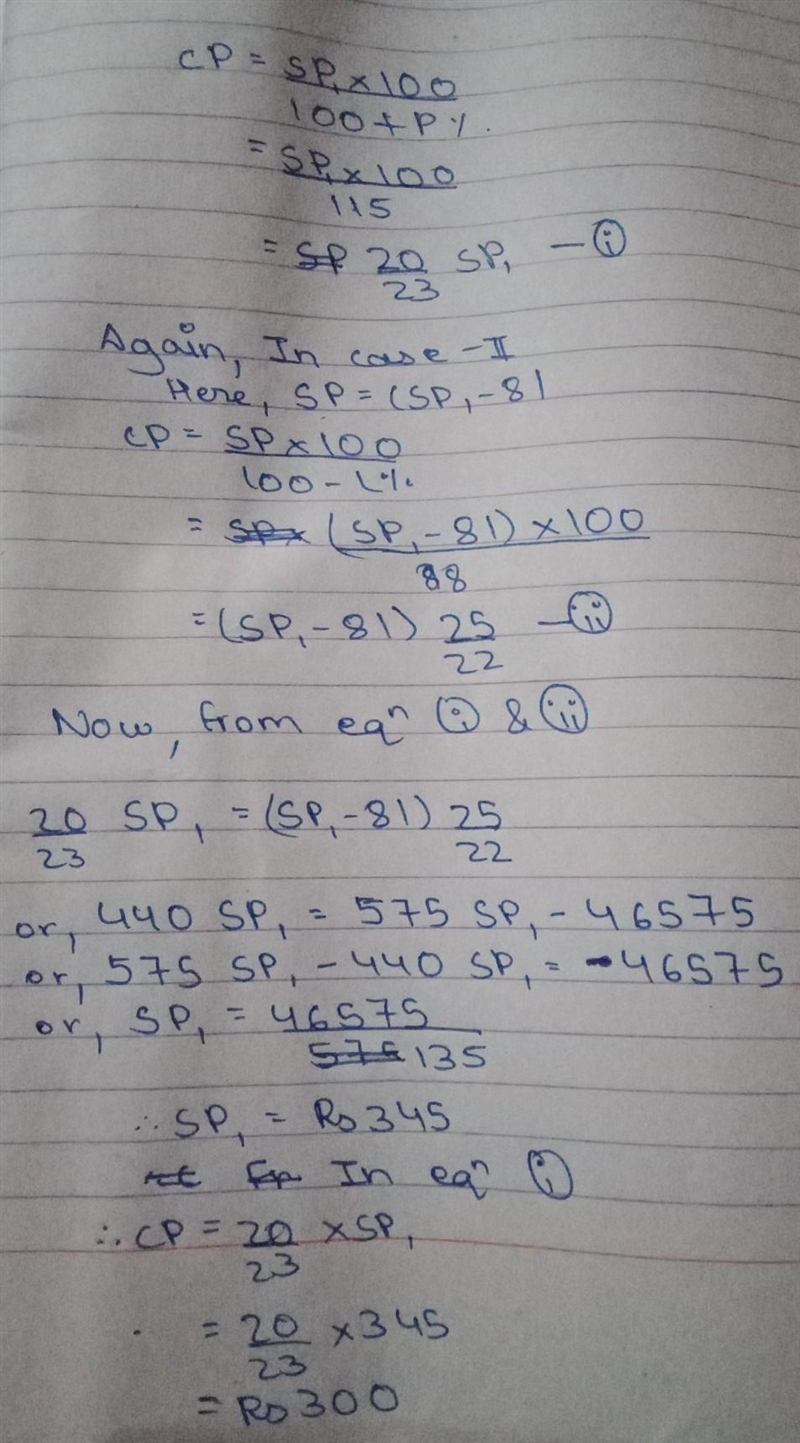 CP = SP₁ × 100
100 + P%.
= SP₁ × 100
115
= SP 20 SP₁ — (i)
23
Again, In case - II
Here, SP = (SP₁ - 81
CP = SP × 100
100 - L%
= SP× (SP₁ - 81) × 100
88
= (SP₁ - 81) 25 — (ii)
22
Now, from eqⁿ (i) & (ii)
20 SP₁ = (SP₁ - 81) 25
23 22
or, 440 SP₁ = 575 SP₁ - 46575
or, 575 SP₁ - 440 SP₁ = -46575
or, SP₁ = 46575
575 135
∴ SP₁ = Rs 345
In eqⁿ (i)
∴ CP = 20 × SP₁
23
= 20 × 345
23
= Rs 300